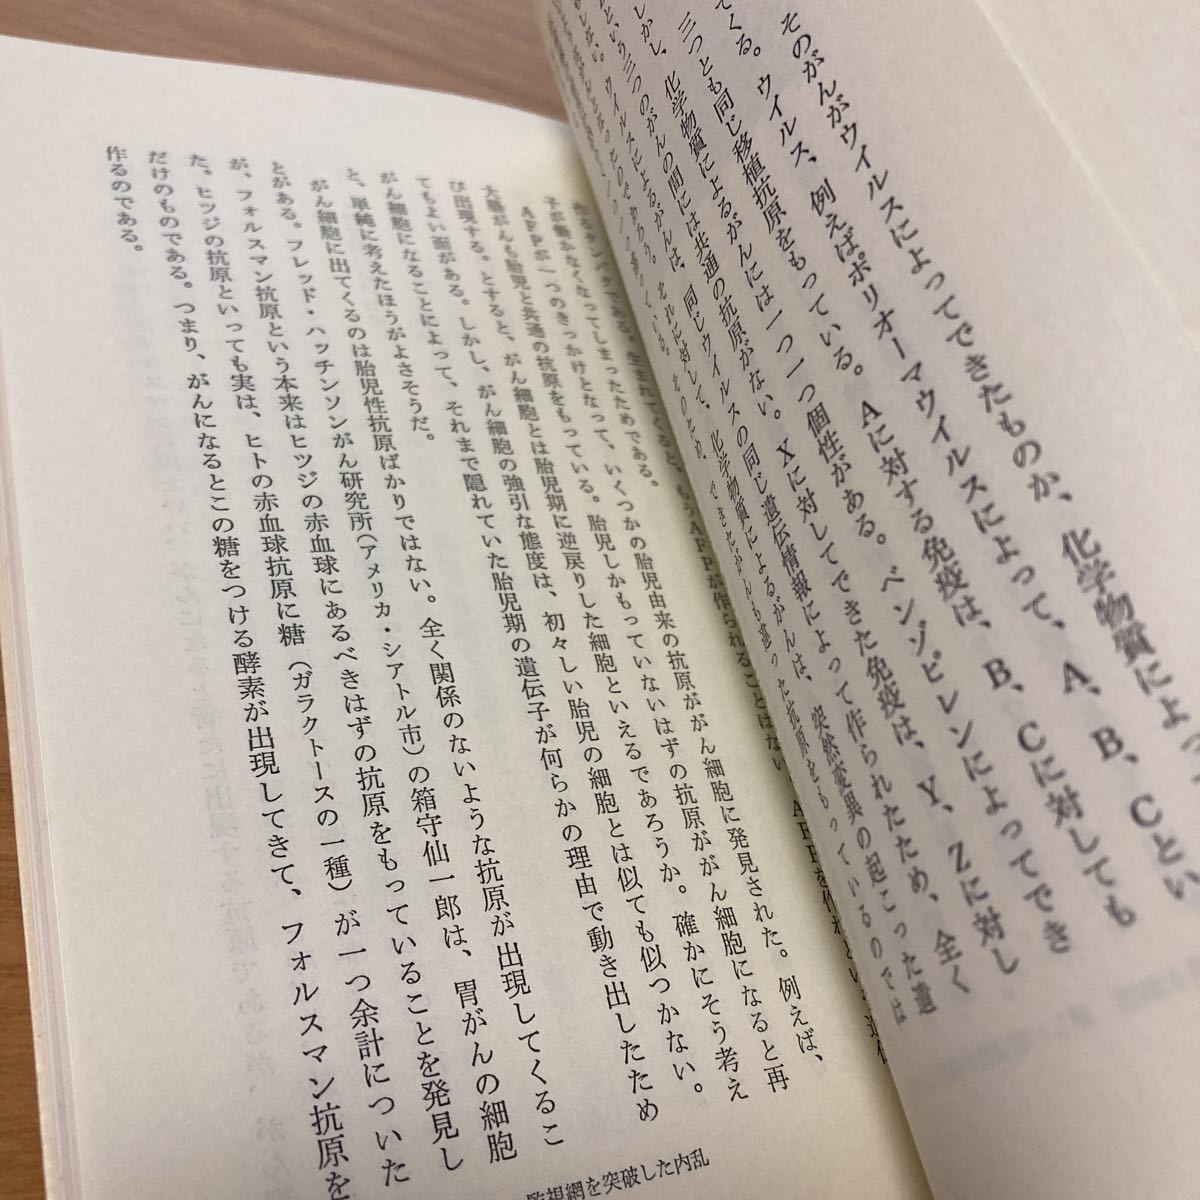 そのがんがウイルスによってできたものか、化学物質によって
てくる。ウイルス、例えばポリオーマウイルスによって、A、B、Cとい
三つとも同じ移植抗原をもっている。Aに対する免疫は、B、Cに対しても
しかし、化学物質によるがんには一つ一つ個性がある。ベンゾピレンによってでき
という三つのがんの間には共通の抗原がない。Xに対してできた免疫は、Y、Zに対し
ウイルスによるがんは、同じウイルスの同じ遺伝情報によって作られたため、全く
それに対して、化学物質によるがんは、突然変異の起こった遺
できたがんも違った抗原をもっているのでは
作るタンパクである。生まれてくると、もうAFPが作られることはない。AFPを作れという遺伝
子が働かなくなってしまったためである。
AFPが一つのきっかけとなって、いくつかの胎児由来の抗原ががん細胞に発見された。例えば、
大腸がんも胎児と共通の抗原をもっている。胎児しかもっていないはずの抗原ががん細胞になると再
び出現する。とすると、がん細胞とは胎児期に逆戻りした細胞といえるであろうか。確かにそう考え
てもよい面がある。しかし、がん細胞の強引な態度は、初々しい胎児の細胞とは似ても似つかない。
がん細胞になることによって、それまで隠れていた胎児期の遺伝子が何らかの理由で動き出したため
と、単純に考えたほうがよさそうだ。
がん細胞に出てくるのは胎児性抗原ばかりではない。全く関係のないような抗原が出現してくるこ
とがある。フレッド・ハッチンソンがん研究所(アメリカ・シアトル市)の箱守仙一郎は、胃がんの細胞
が、フォルスマン抗原という本来はヒツジの赤血球にあるべきはずの抗原をもっていることを発見し
た。ヒツジの抗原といっても実は、ヒトの赤血球抗原に糖(ガラクトースの一種)が一つ余計についた
だけのものである。つまり、がんになるとこの糖をつける酵素が出現してきて、フォルスマン抗原を
作るのである。
監視網を突破した内乱